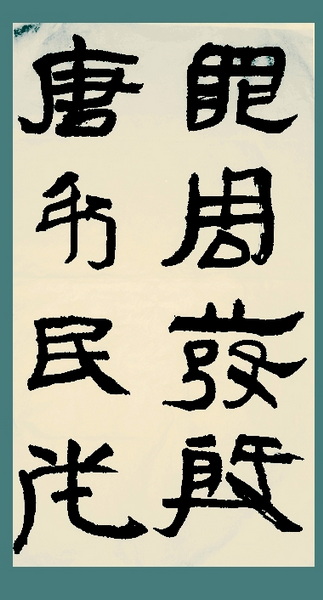 唐弔民伐
罪周發殷